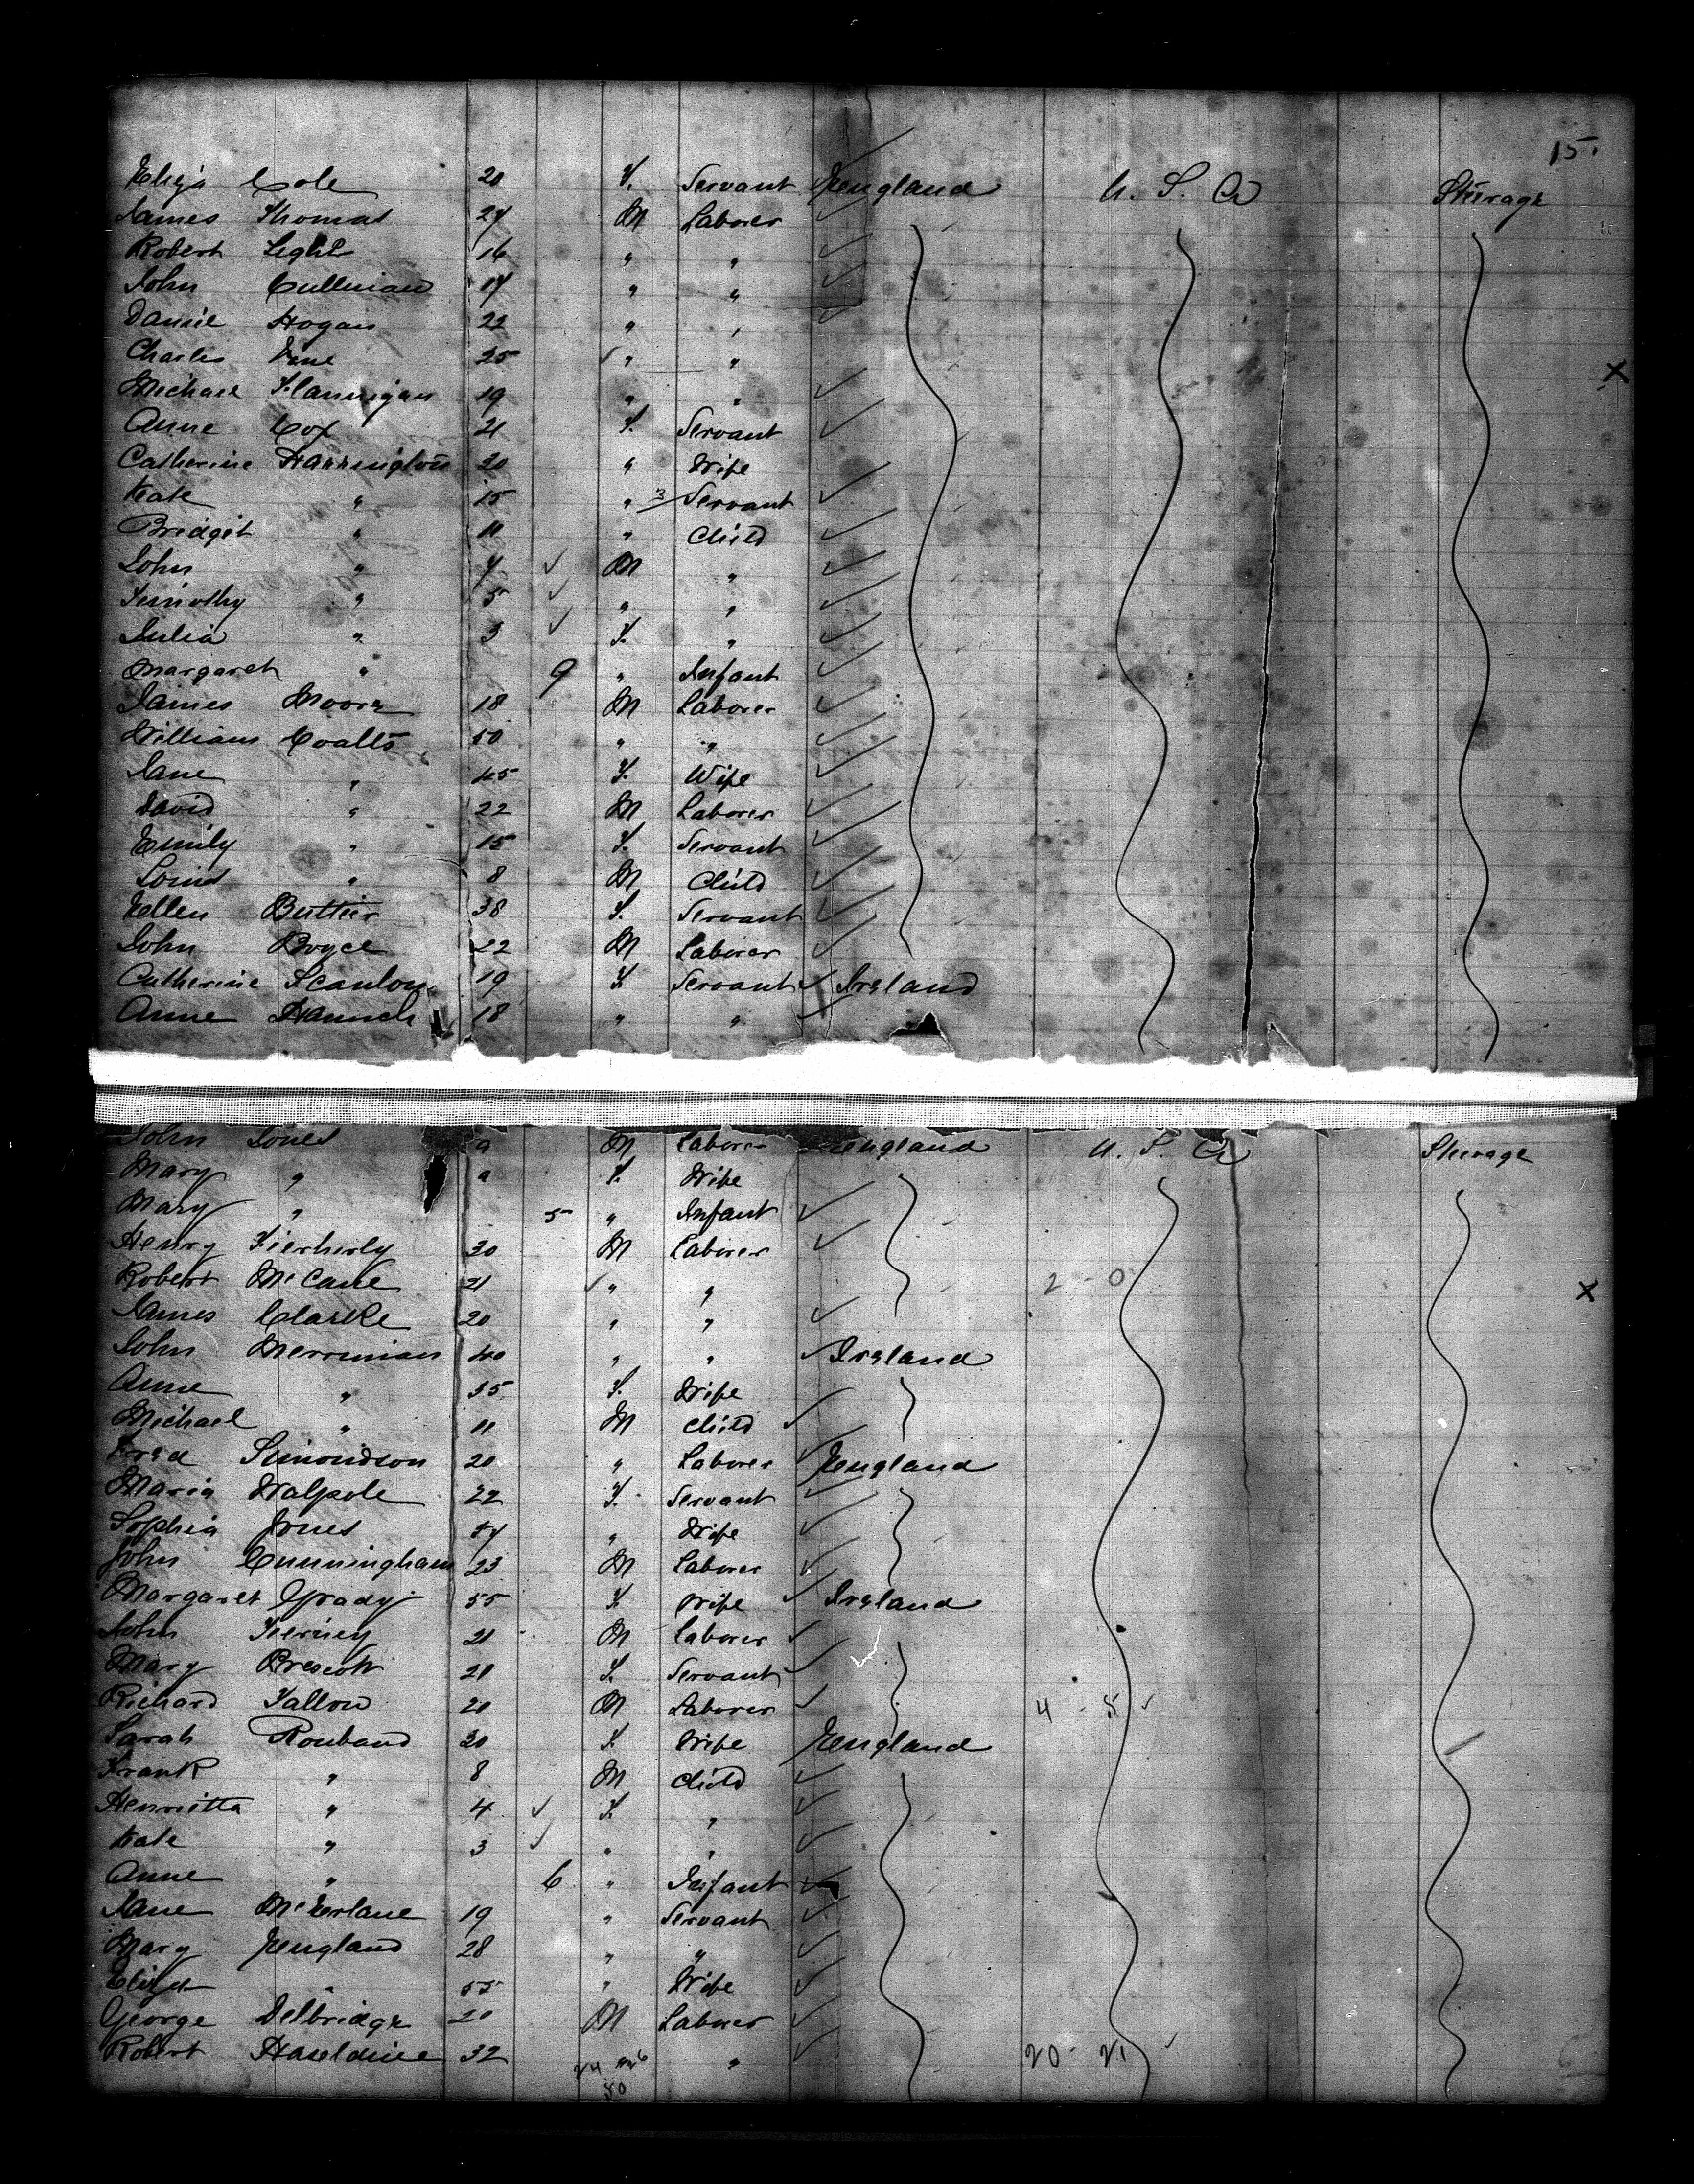 15.
Eliza Cole 20 F. Servant England U. S. A Steerage
James Thomas 27 M Laborer
Robert Light 16 " "
John Cullinian 17 " "
Daniel Hogan 22 " "
Charles 25 " "
Michael Flannigan 19 " "
Anne Cox 21 F. Servant
Catherine Harrington 30 " Wife
Kate " 15 " 3 Servant
Bridget " 11 " Child
John " 7 M "
Timothy " 5 " "
Julia " 3 F. "
Margaret " 9 " Infant
James Moore 18 M Laborer
William Coatts 50 " "
Jane " 45 F. Wife
David " 22 M Laborer
Emily " 15 F. Servant
Louis " 8 M Child
Ellen Butler 38 F. Servant
John Bryce 22 M Laborer
Catherine Scanlon 19 F. Servant Ireland
Anne 18 " "
John Jones M Laborer England U. S. A Steerage
Mary " F. Wife
Mary " 5 " Infant
Henry 30 M Laborer
Robert McCane 21 " " 2 - 0
James Clarke 20 " "
John Merriman 40 " " Ireland
Anne " 35 F. Wife
Michael " 11 M Child
Fred Simondson 20 " Laborer England
Maria Walpole 22 F. Servant
Sophia Jones 57 " Wife
John Cunningham 23 M Laborer
Margaret Grady 55 F. Wife Ireland
John Tierney 21 M Laborer
Mary Prescott 21 F. Servant
Richard Fallow 20 M Laborer 4 - 5
Sarah Rouband 30 F. Wife England
Frank " 8 M Child
Henrietta " 4 F. "
Kate " 3 " "
Anne " 6 " Infant
Jane McErlane 19 " Servant
Mary England 28 " "
Eliza " 55 " Wife
George Delbridge 20 M Laborer
Robert Haseldine 32 24 26 " 20 - 21
50